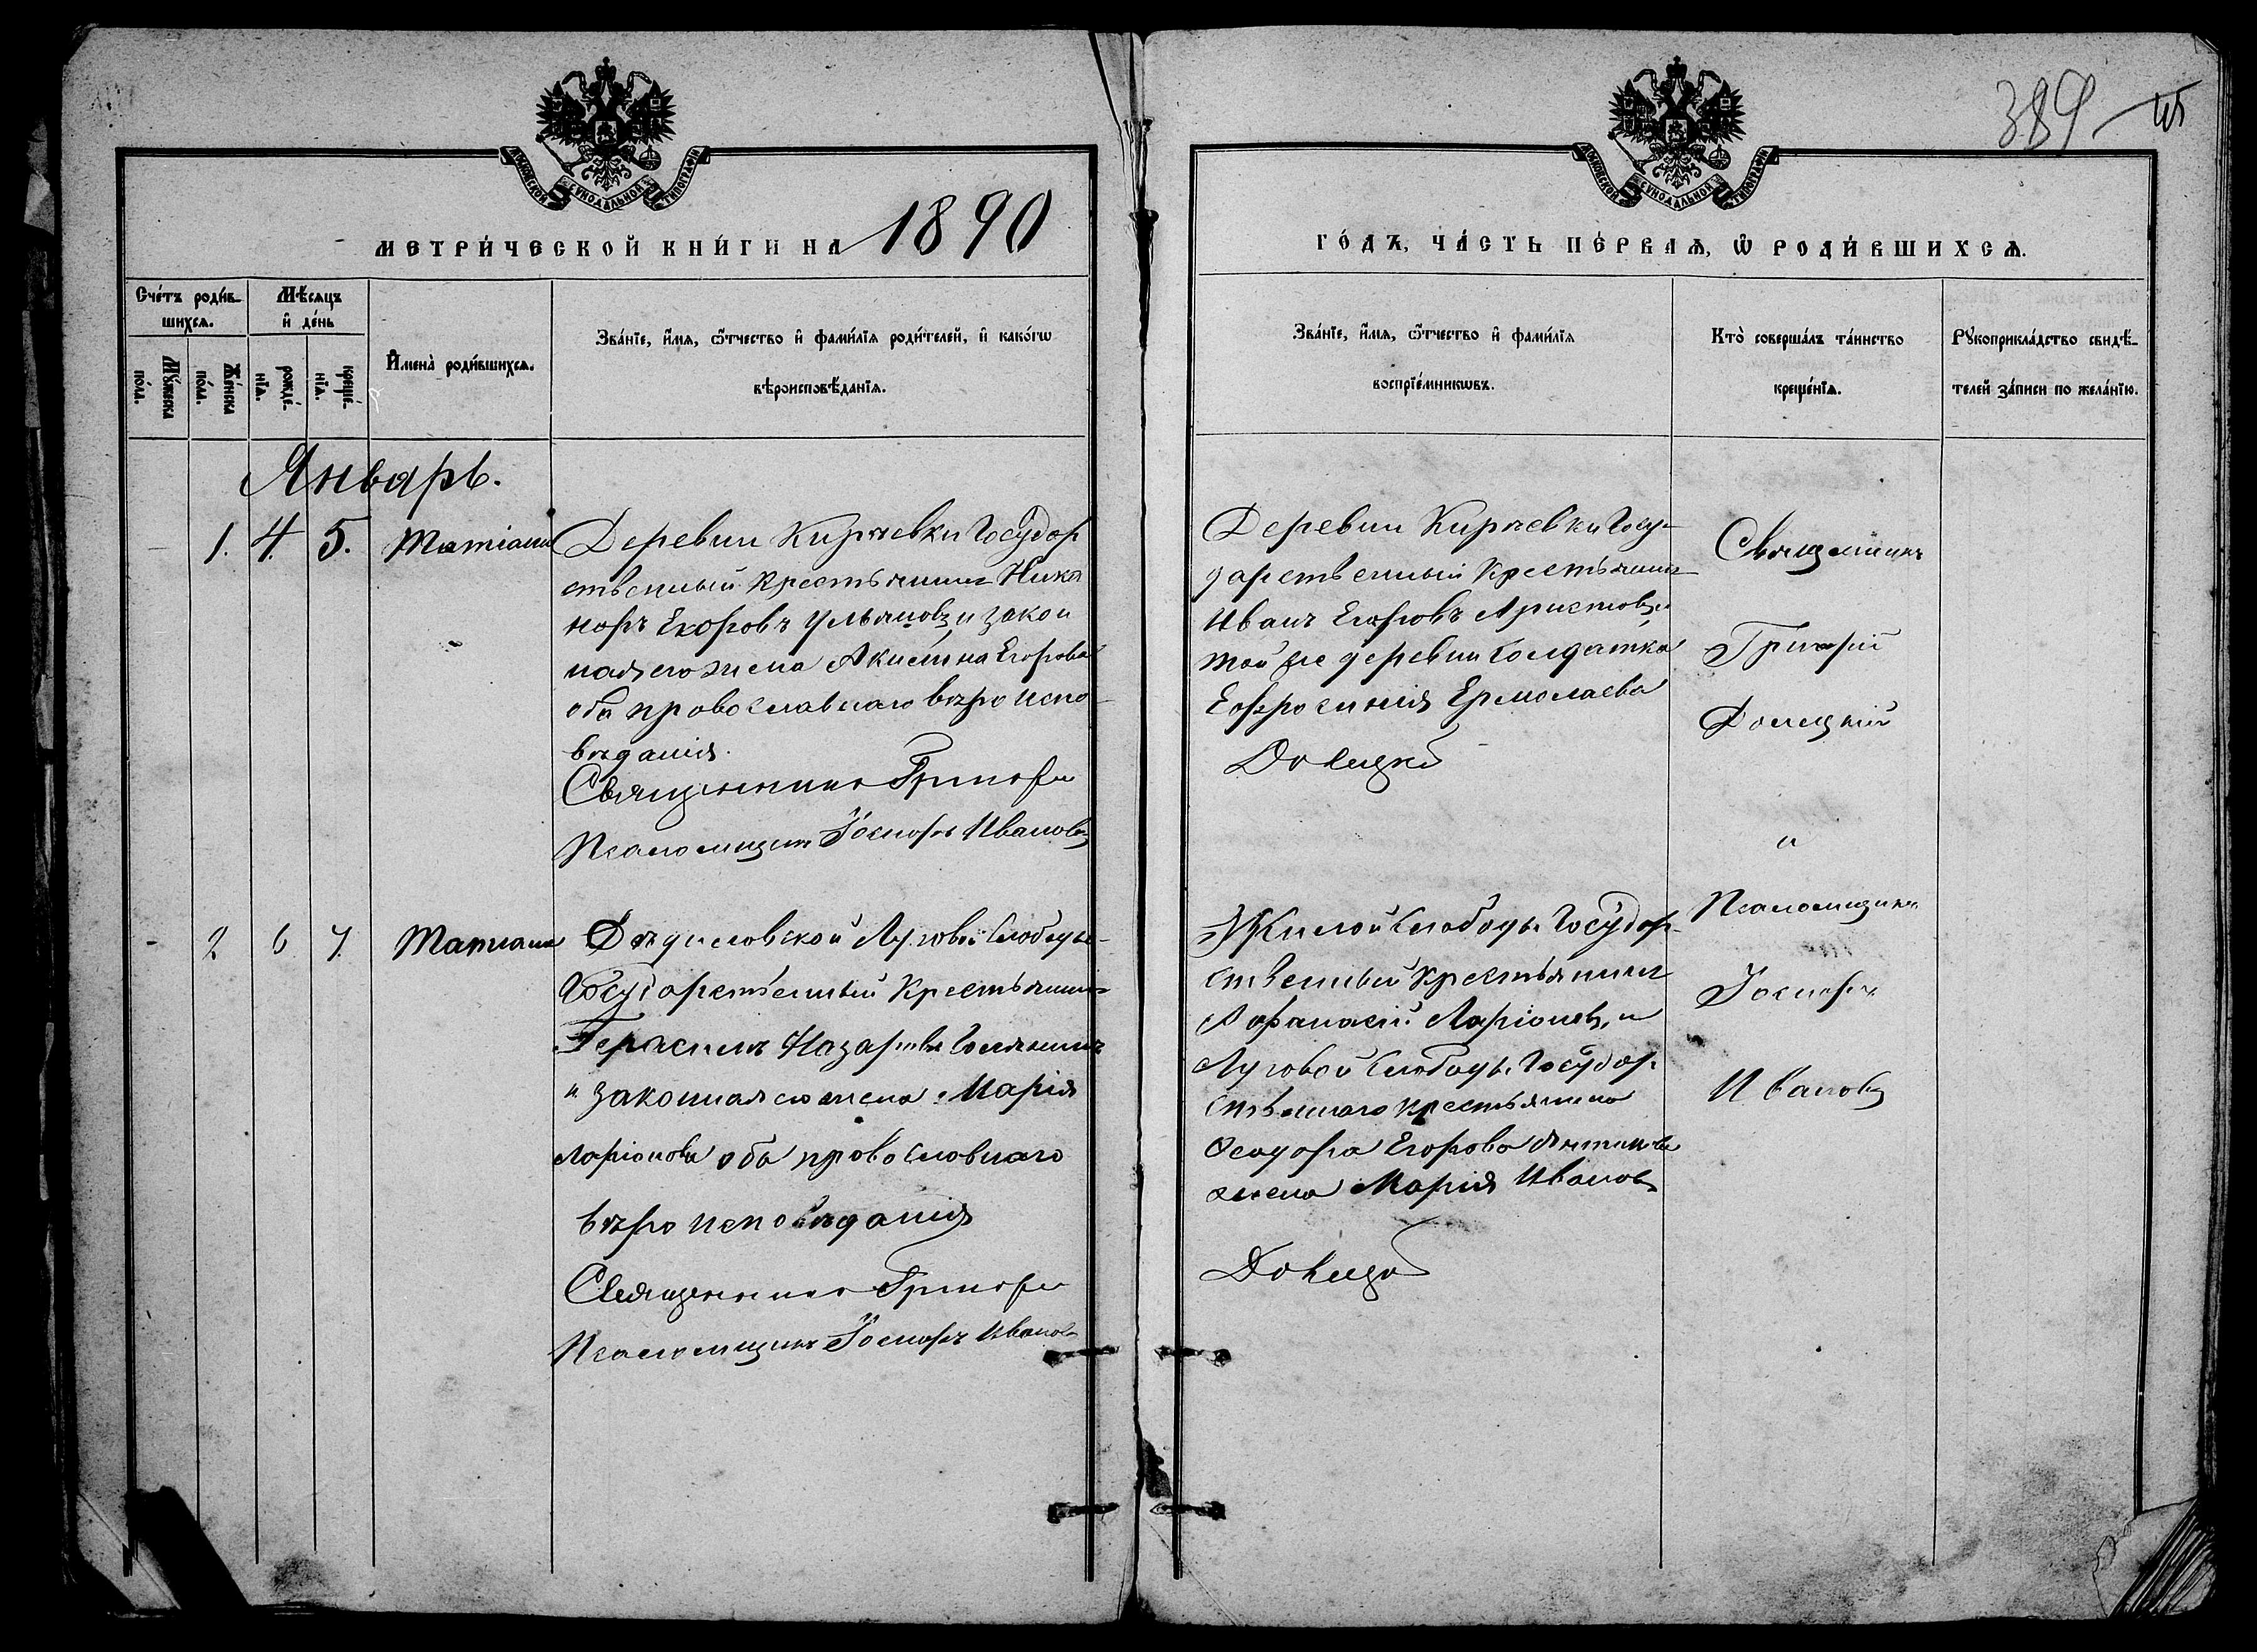 389
МОСКОВСКОЙ СѴНОДАЛЬНОЙ ТИПОГРАФІИ
МОСКОВСКОЙ СѴНОДАЛЬНОЙ ТИПОГРАФІИ
МЕТРИ́ЧЕСКОЙ КНИ́ГИ НА 1890
ГО́ДЪ, ЧА́СТЬ ПЕ́РВАѦ, Ѡ҆ РОДИ́ВШИХСѦ.
Сче́тъ роди́в-
шихсѧ.
Мꙋ́жеска
по́ла.
Же́нска
по́ла.
Мѣ́сѧцъ
и҆ де́нь
рожде́-
нїѧ.
креще́-
нїѧ.
И҆мена̀ роди́вшихсѧ.
Зва́нїе, и҆́мѧ, ѻ҆́тчество и҆ фами́лїѧ роди́телей, и҆ како́гѡ
вѣроисповѣ́данїѧ.
Зва́нїе, и҆́мѧ, ѻ҆́тчество и҆ фами́лїѧ
воспрїе́мникѡвъ.
Кто̀ соверша́лъ та́инство
креще́нїѧ.
Рꙋкоприкла́дство свидѣ́-
телей за́писи по жела́нїю.
Январь.
1. 4. 5. Татіана
Деревни Кирѣевки Государ
ственный крестьянинъ Ника
норъ Егоровъ Ульяновъ и закон
ная его жена Акилина Егорова
оба православнаго вѣроиспо-
вѣданія.
Священникъ Григорій
Псаломщикъ Іосифъ Ивановъ
Деревни Кирѣевки Госу-
дарственный крестьянинъ
Иванъ Егоровъ Аристовъ и
той же деревни солдатка
Евфросинія Ермолаева
Священникъ
Григорій
Донецкій
и
Псаломщикъ
Іосифъ
Ивановъ
2 6 7. Татіана
Дѣдиловской Луговой Слободы
Государственный крестьянинъ
Герасимъ Назаровъ
и законная его жена Марія
Ларіонова оба православнаго
вѣроисповѣданія
Священникъ Григорій
Псаломщикъ Іосифъ Ивановъ
Жилой Слободы Государ-
ственный крестьянинъ
Афанасій Ларіоновъ и
Луговой Слободы Государ-
ственнаго крестьянина
Ѳеодора Егорова
жена Марія Иванова